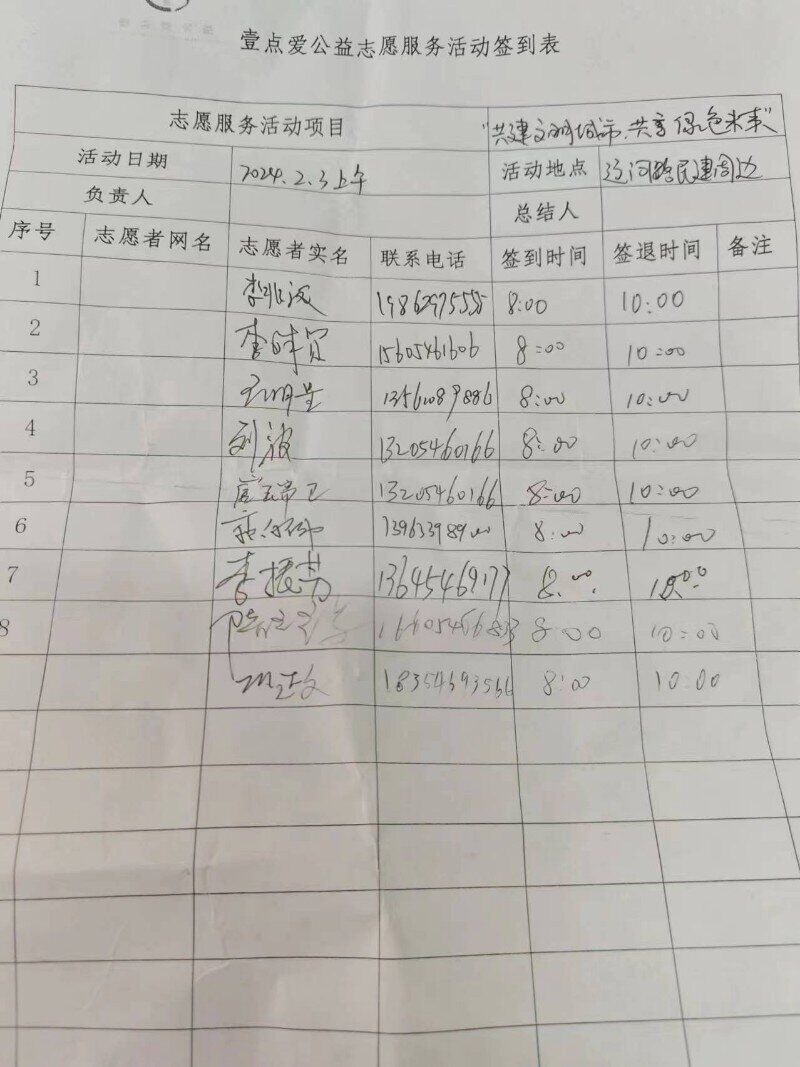 壹点爱公益志愿服务活动签到表
志愿服务活动项目 "共建文明城市,共享绿色未来"
活动日期 2024.2.3上午 活动地点 辽河路民建周边
负责人 总结人
序号 志愿者网名 志愿者实名 联系电话 签到时间 签退时间 备注
1 李兆波 19862975555 8:00 10:00
2 李时贸 15605461606 8:00 10:00
3 王明星 13561089886 8:00 10:00
4 刘波 13205460166 8:00 10:00
5 13205460166 8:00 10:00
6 13963398900 8:00 10:00
7 李振芳 13645469177 8:00 10:00
8 8:00 10:00
18354693566 8:00 10:00